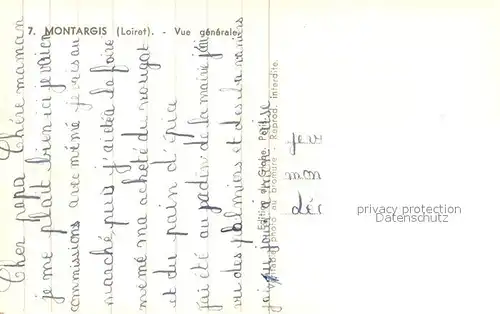 7. MONTARGIS (Loiret). - Vue générale.
Cher papa Chère maman
je me plait bien ici je vai en
commissions avec mémé je vais au
marché, puis j'ai été à la foire
mémé m'a acheté du nougat
et du pain d'épice
j'ai été au jardin de la mairie j'ai
vu des palmiers et des bananiers
j'ai pu jouer a
Reprod. interdite.
mon
privacy protection
Datenschutz